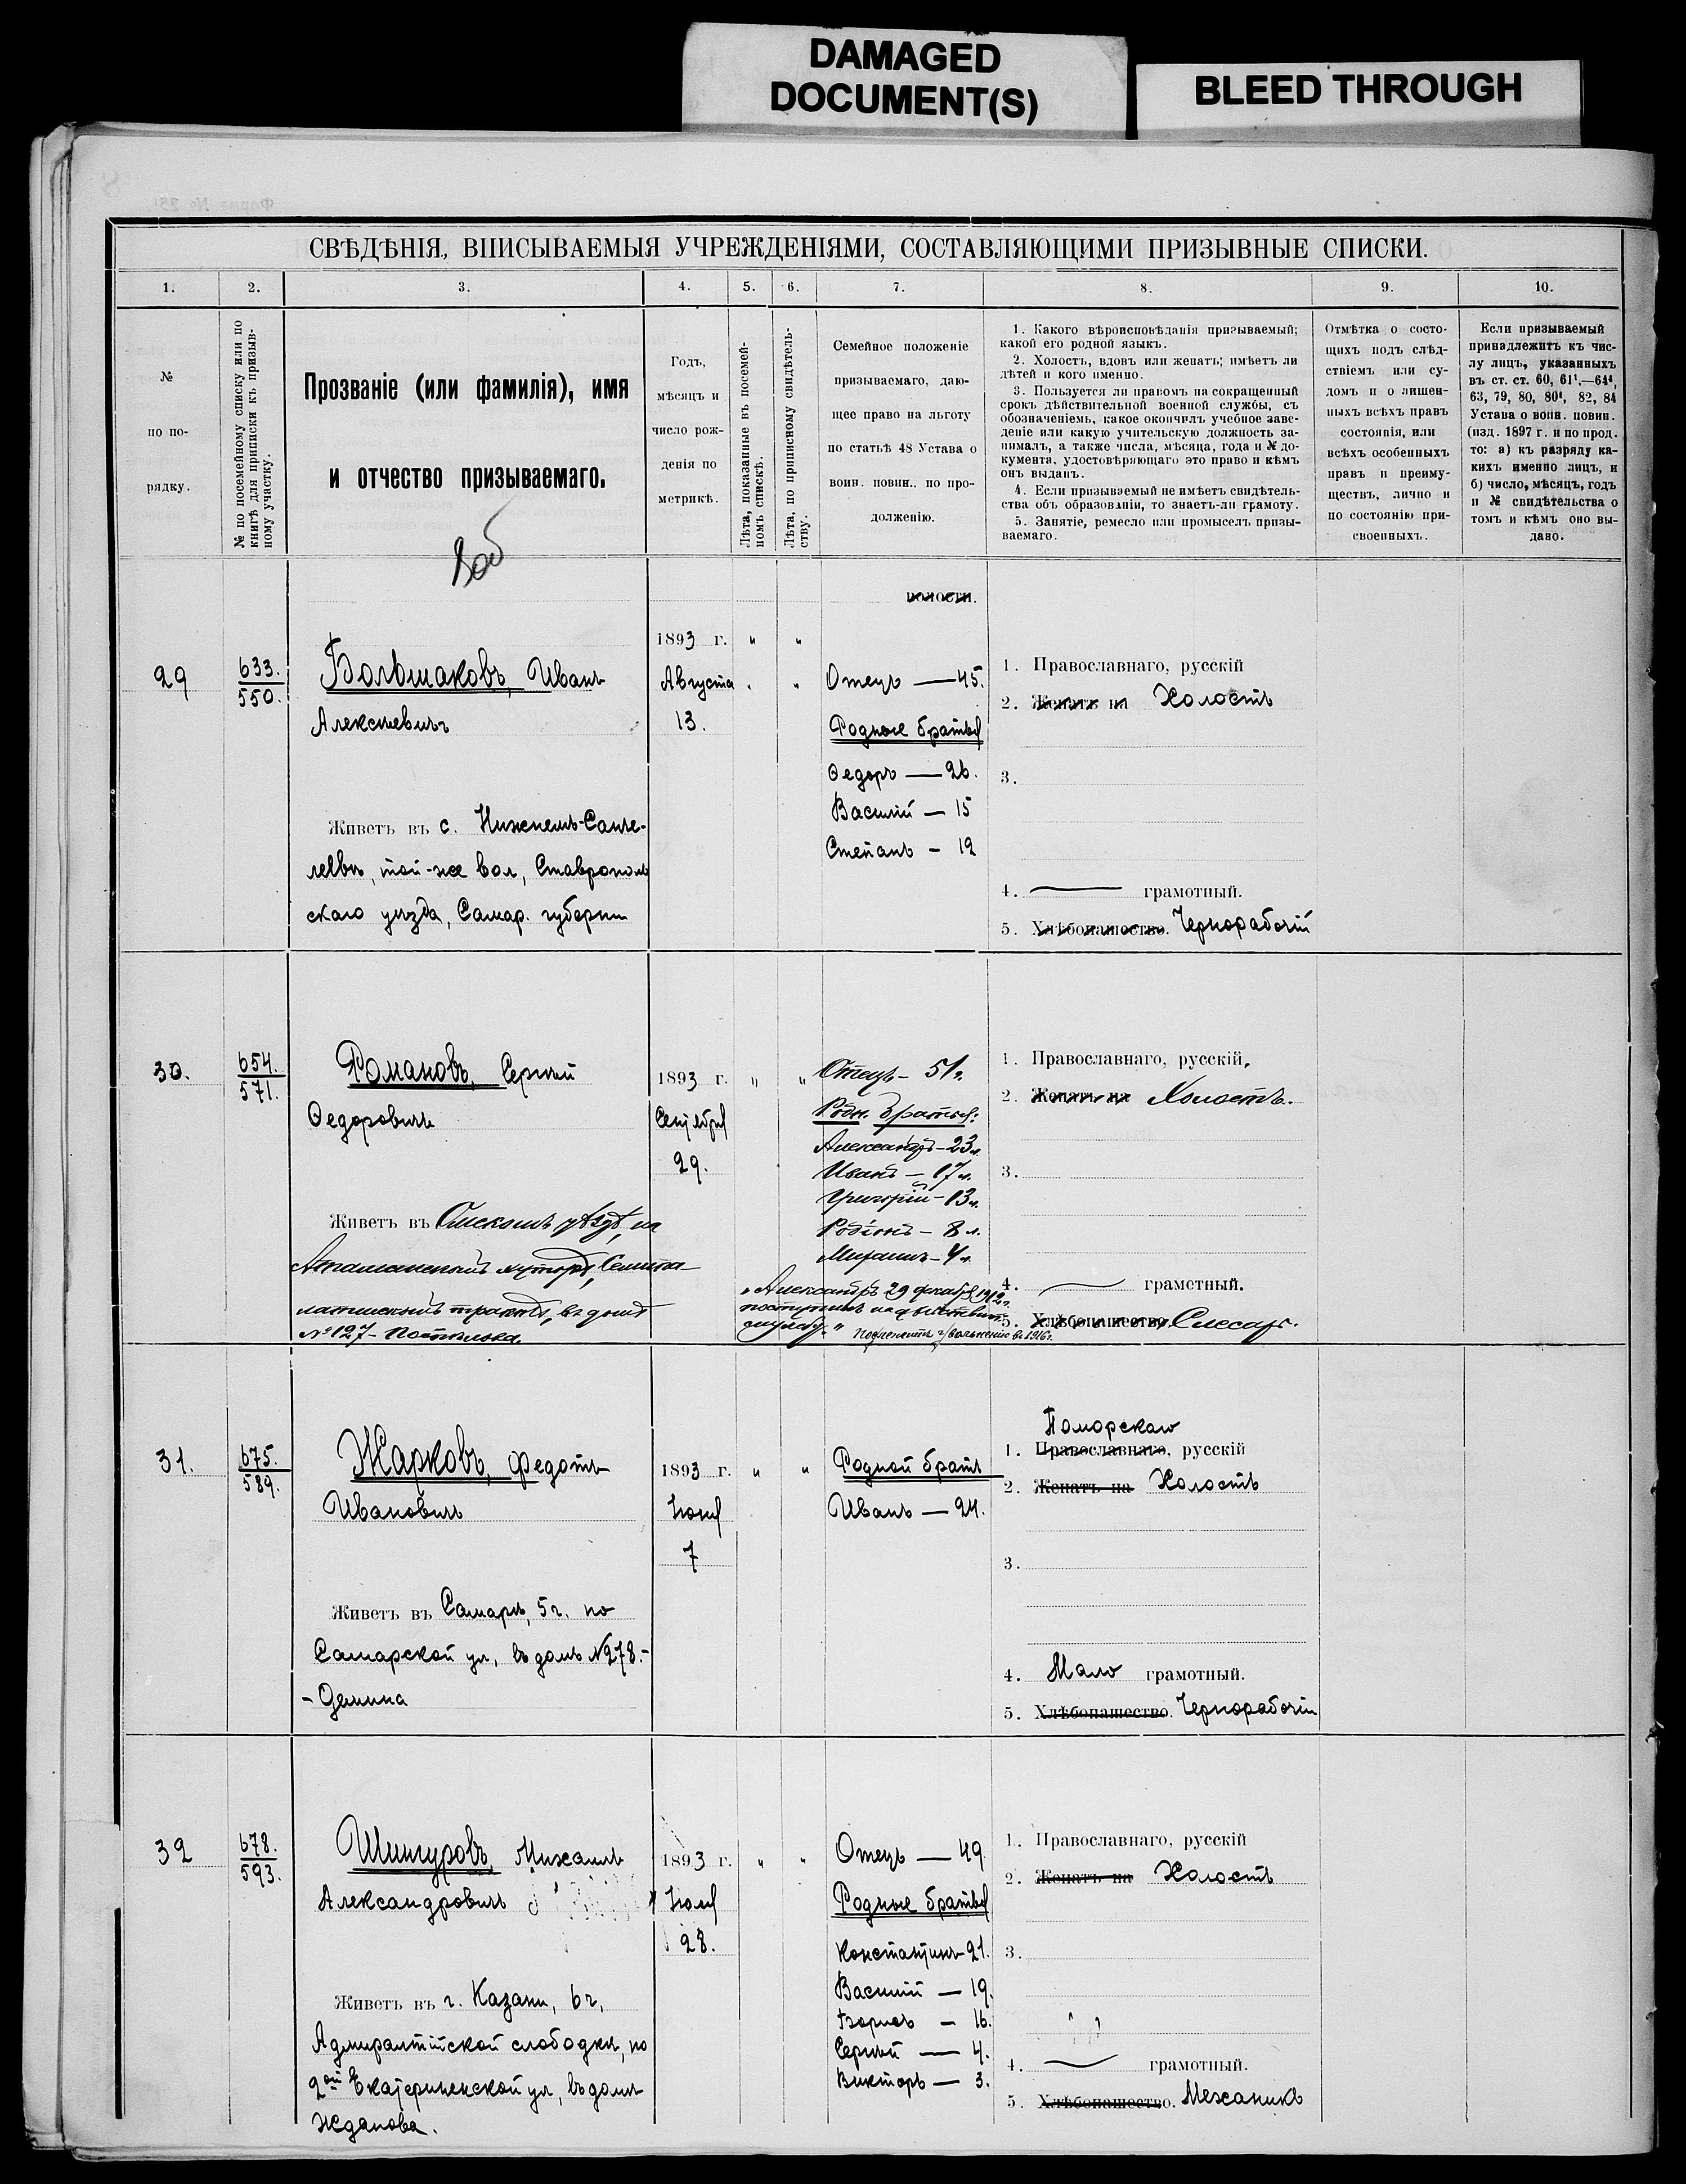 DAMAGED
DOCUMENT(S)
BLEED THROUGH
СВѢДѢНІЯ, ВПИСЫВАЕМЫЯ УЧРЕЖДЕНІЯМИ, СОСТАВЛЯЮЩИМИ ПРИЗЫВНЫЕ СПИСКИ.
1. 2. 3. 4. 5. 6. 7. 8. 9. 10.
№
по по-
рядку.
№ по посемейному списку или по
книгѣ для приписки къ призыв-
ному участку.
Прозваніе (или фамилія), имя
и отчество призываемаго.
Годъ,
мѣсяцъ и
число рож-
денія по
метрикѣ.
Лѣта, показанные въ посемей-
номъ спискѣ.
Лѣта, по приписному свидѣтель-
ству.
Семейное положеніе
призываемаго, даю-
щее право на льготу
по статьѣ 48 Устава о
воин. повин.. по про-
долженію.
1. Какого вѣроисповѣданія призываемый;
какой его родной языкъ.
2. Холостъ, вдовъ или женатъ; имѣетъ ли
дѣтей и кого именно.
3. Пользуется ли правомъ на сокращенный
срокъ дѣйствительной военной службы, съ
обозначеніемъ, какое окончилъ учебное заве-
деніе или какую учительскую должность за-
нималъ, а также числа, мѣсяца, года и № до-
кумента, удостовѣряющаго это право и кѣмъ
онъ выданъ.
4. Если призываемый не имѣетъ свидѣтель-
ства объ образованіи, то знаетъ-ли грамоту.
5. Занятіе, ремесло или промыселъ призы-
ваемаго.
Отмѣтка о состо-
щихъ подъ слѣд-
ствіемъ или су-
домъ и о лишен-
ныхъ всѣхъ правъ
состоянія, или
всѣхъ особенныхъ
правъ и преиму-
ществъ, лично и
по состоянію при-
своенныхъ.
Если призываемый
принадлежитъ къ чис-
лу лицъ, указанныхъ
въ ст. ст. 60, 61¹,—64⁴,
63, 79, 80, 80¹, 82, 84
Устава о воин. повин.
(изд. 1897 г. и по прод.
то: а) къ разряду ка-
кихъ именно лицъ, и
б) число, мѣсяцъ, годъ
и № свидѣтельства о
томъ и кѣмъ оно вы-
дано.
волости.
29
633.
550.
Большаковъ, Иванъ
Алексѣевичъ
Живетъ въ с. Нижнемъ-Санче-
леевѣ, той-же вол, Ставрополь
скаго уѣзда, Самар. губерніи
1893 г. " "
Августа
13.
Отецъ — 45.
Родные братья
Ѳедоръ — 26.
Василій — 15
Степанъ — 12
1. Православнаго, русскій
2. Женатъ на Холостъ
3.
4. — грамотный.
5. Хлѣбопашество. Чернорабочій
30.
654.
571.
Романовъ, Сергѣй
Ѳедоровичъ
Живетъ въ Омскомъ уѣздѣ, на
Атаманскомъ хуторѣ, Семипа-
латинскій трактъ, въ домѣ
№ 127 -
1893 г. " "
Сентября
29.
Отецъ — 51 г.
Родн. братья:
Александръ — 23 л.
Иванъ — 17 л.
Григорій — 13 л.
Родіонъ — 8 л.
— 4 л.
"Александръ 29 декабря 1912 г.
поступилъ на дѣйствит.
службу."
Подлежитъ увольненію въ 1916 г.
1. Православнаго, русскій.
2. Женатъ на Холостъ.
3.
4. — грамотный.
5. Хлѣбопашество Слесарь.
31.
675.
589.
Жарковъ, Федотъ
Ивановичъ
Живетъ въ Самарѣ, 5 ч. по
Самарской ул, въ домѣ № 278.-
- Демина
1893 г. " "
Іюня
7
Родной братъ
Иванъ — 24.
Поморскаго
1. Православнаго, русскій
2. Женатъ на Холостъ
3.
4. Мало грамотный.
5. Хлѣбопашество. Чернорабочій
32
678.
593.
Шингуровъ, Михаилъ
Александровичъ
Живетъ въ г. Казани, 6 ч,
Адмиралтійской слободки, по
2ой Екатериненской ул, въ домѣ
Жданова.
1893 г. " "
Іюля
28.
Отецъ — 49
Родные братья
Константинъ — 21.
Василій — 19.
Борисъ — 16.
Сергѣй — 4.
Викторъ — 3.
1. Православнаго, русскій
2. Женатъ на Холостъ
3.
4. — грамотный.
5. Хлѣбопашество. Механикъ